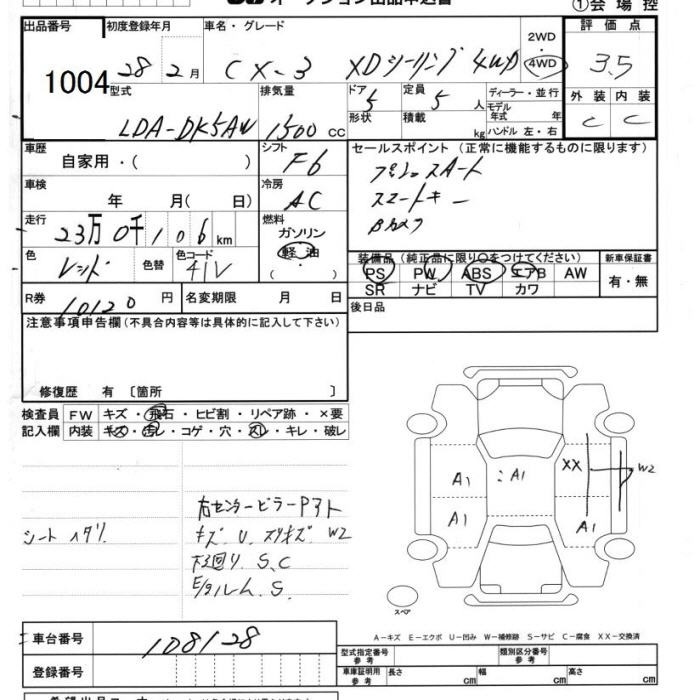 オークション出品申込書
①会場控
出品番号 初度登録年月 車名・グレード 2WD 評価点
1004 28 2月 CX-3 XDツーリング 4WD 4WD 3.5
型式 排気量 ドア 5 定員 5 人 ディーラー・並行 外装 内装
LDA-DK5AW 1500 cc 形状 積載 kg モデル年式 年 ハンドル 左・右 C C
車歴 自家用・( ) シフト F6 セールスポイント (正常に機能するものに限ります)
車検 年 月( 日) 冷房 AC プッシュスタート
スマートキー
Bカメラ
走行 23万0千106km 燃料 ガソリン 軽油 ( ・ )
色 レッド 色替 色コード 41V
装備品(純正品に限り○をつけてください) 新車保証書
PS PW ABS エアB AW 有・無
SR ナビ TV カワ
R券 10120 円 名変期限 月 日 後日品
注意事項申告欄(不具合内容等は具体的に記入して下さい)
修復歴 有 〔箇所 〕
検査員 FW キズ・飛石・ヒビ割・リペア跡・×要
記入欄 内装 キズ・汚レ・コゲ・穴・スレ・キレ・破レ
XX W2
A1 A1
A1 A1
右センターピラーPアト
シート ヘタリ キズ U. スリキズ W2
下廻り S.C
E/gルーム S.
スペア
A-キズ E-エクボ U-凹み W-補修跡 S-サビ C-腐食 XX-交換済
車台番号 108128
型式指定番号 参考 類別区分番号 参考
登録番号 車庫証明用 参考 長さ cm 幅 cm 高さ cm